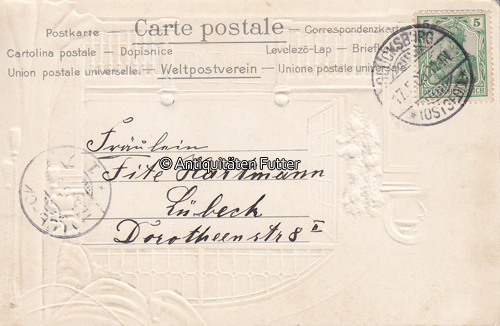 Postkarte Carte postale Correspondenzkarte
Cartolina postale - Dopisnice Levelező-Lap - Briefk
Union postale universelle. Weltpostverein Unione postale universale.
5
17.5.
*(OSTSCHOL)*
Fräulein
© Antiquitäten Futter
Fite Hartmann
Lübeck
Dorotheenstr 8 II